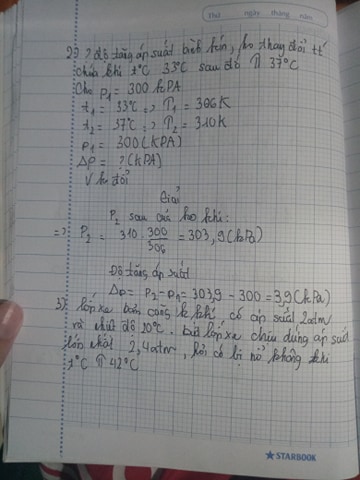 Thứ ngày tháng năm
2) ? độ tăng áp suất bình kín, ko thay đổi tt
chứa khí t°C 33°C sau đó 37°C
Cho P₁ = 300 kPA
t₁ = 33°C => T₁ = 306K
t₂ = 37°C => T₂ = 310K
P₁ = 300 (kPA)
Δp = ? (kPA)
V ko đổi
Giải
P₂ sau của khí:
=> P₂ = 310 . 300 / 306 = 303,9 (kPa)
Độ tăng áp suất
Δp = P₂ - P₁ = 303,9 - 300 = 3,9 (kPa)
3) lốp xe bơm căng k khí có áp suất 2atm
và nhiệt độ 20°C. biết lốp xe chịu đựng áp suất
lớn nhất 2,4atm, hỏi có bị nổ không khi
t°C 42°C
STARBOOK